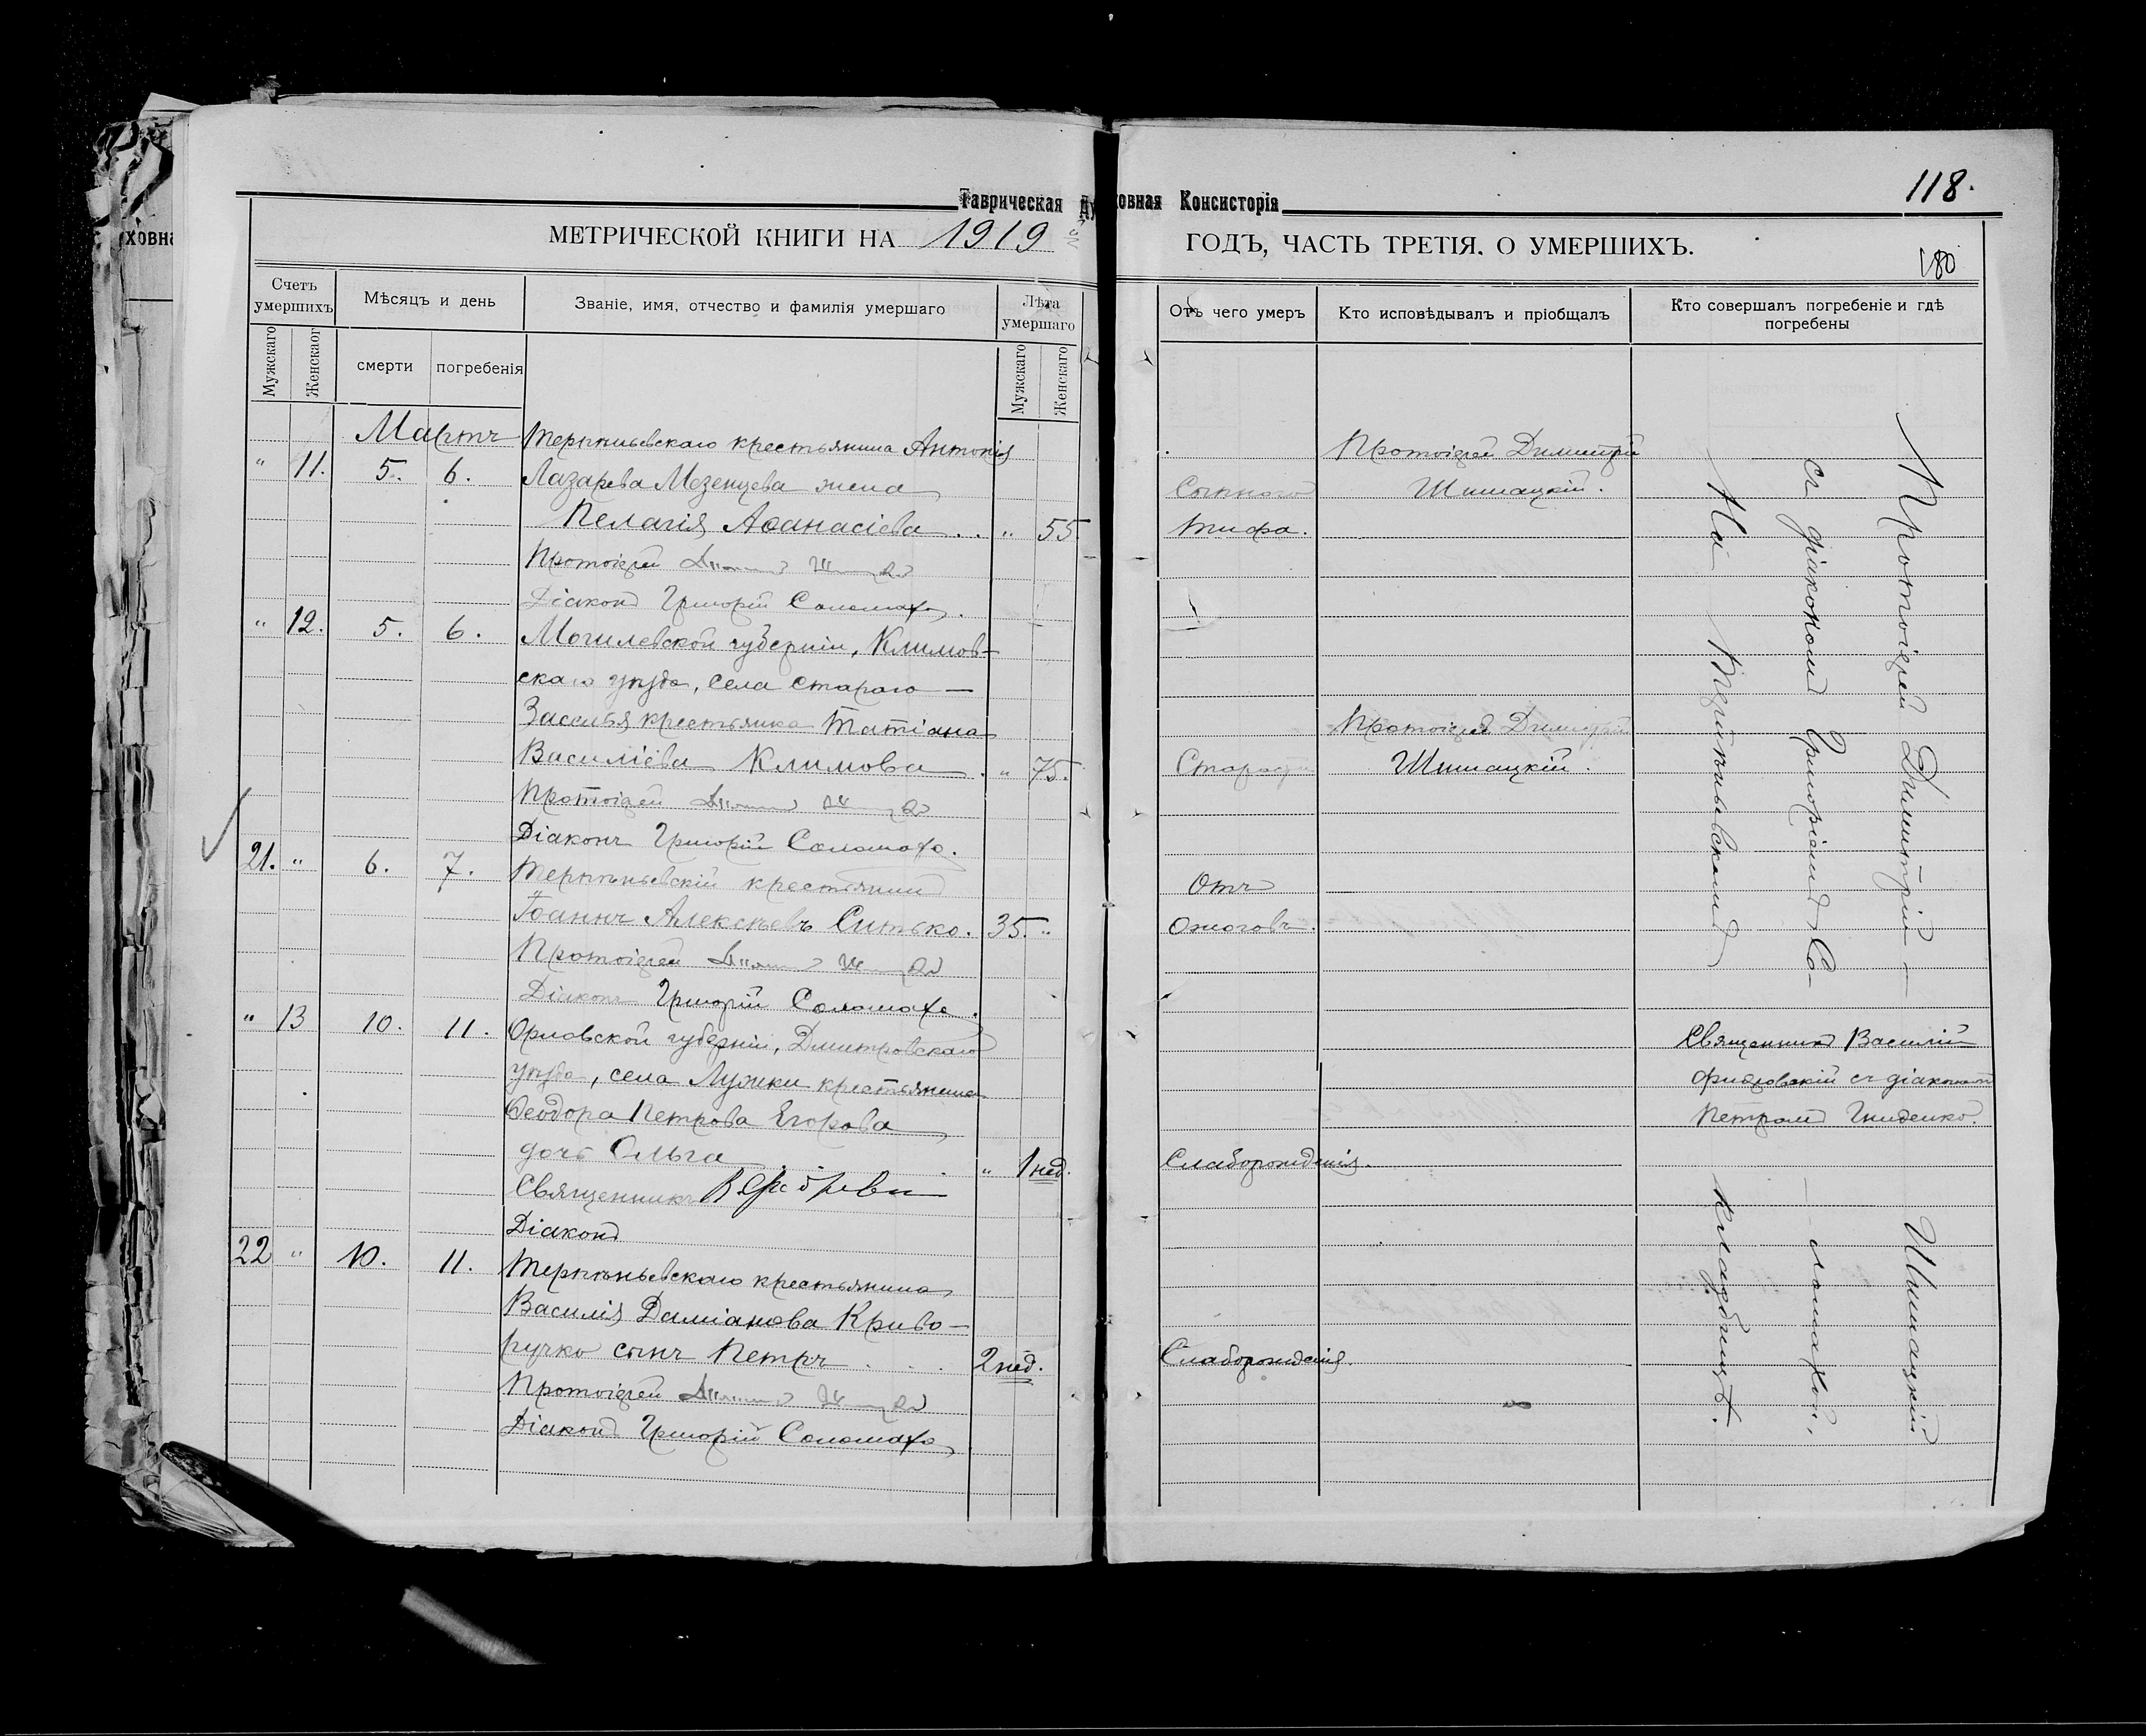 ховна
Таврическая Духовная Консисторія
118.
МЕТРИЧЕСКОЙ КНИГИ НА 1919 ГОДЪ, ЧАСТЬ ТРЕТІЯ, О УМЕРШИХЪ.
180
Счетъ умершихъ
Мѣсяцъ и день
Званіе, имя, отчество и фамилія умершаго
Лѣта умершаго
Отъ чего умеръ
Кто исповѣдывалъ и пріобщалъ
Кто совершалъ погребеніе и гдѣ погребены
Мужскаго
Женскаог
смерти
погребенія
Мужскаго
Женскаго
Мартъ
Терпѣньевскаго крестьянина Антонія
Протоіерей Димитрій
" 11. 5. 6. Лазарева Мезенцева жена
Сыпного
Шишацкій.
Пелагія Аѳанасіева . . " 55.
тифа.
Протоіерей
Діаконъ Григорій Соломаха.
" 12. 5. 6. Могилевской губерніи, Климов-
скаго уѣзда, села Стараго —
крестьянка Татіана
Протоіерей Димитрій
Василіева Климова . " 75.
Старости
Шишацкій.
Протоіерей
Діаконъ Григорій Соломаха.
21. " 6. 7. Терпѣньевскій крестьянинъ
Отъ
Іоаннъ Алексѣевъ Ситько. 35. "
ожоговъ.
Протоіерей
Діаконъ Григорій Соломаха.
" 13 10. 11. Орловской губерніи, Дмитровскаго
уѣзда, села Лужки крестьянина
Ѳеодора Петрова Егорова
дочь Ольга . " 1 нед.
Слаборожденія.
Священникъ
Діаконъ
22 " 10. 11. Терпѣньевскаго крестьянина
Василія Даміанова Криво-
ручко сынъ Петръ . . . 2 нед.
Слаборожденія.
Протоіерей
Діаконъ Григорій Соломаха
Протоіерей Димитрій — Шишацкій
съ діакономъ Григоріемъ Со-
— ломахой,
На Терпѣньевскомъ кладбищѣ.
Священникъ Василій
съ діакономъ
Петромъ Гниденко.